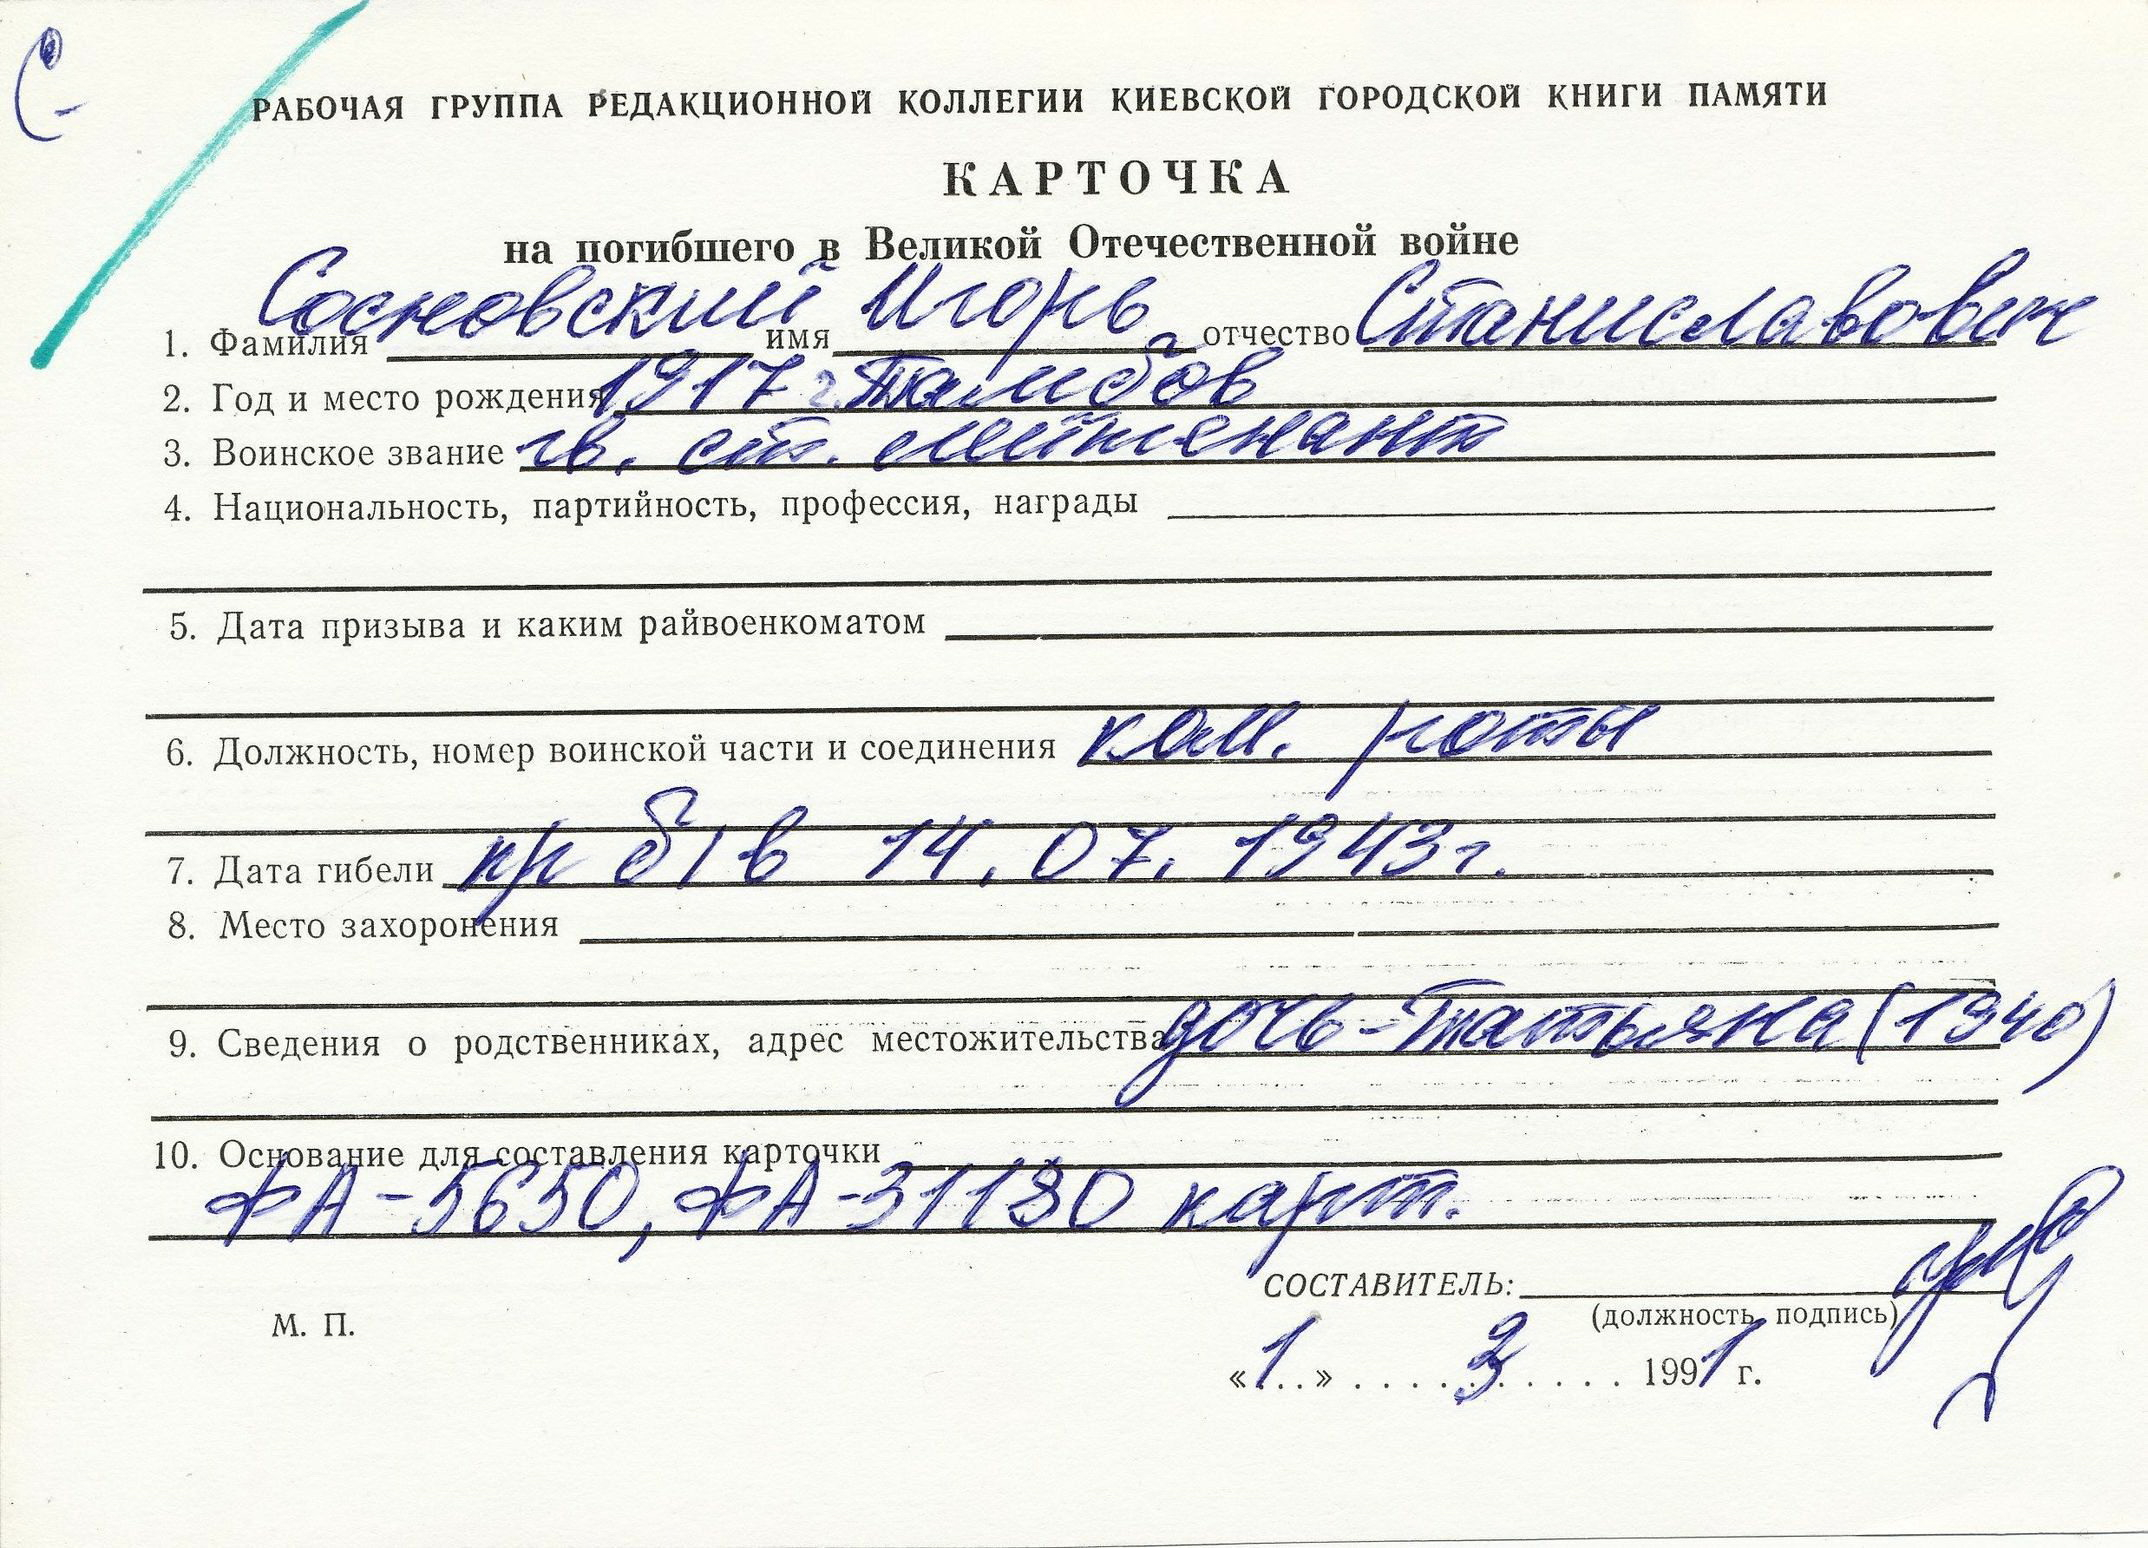 С-
РАБОЧАЯ ГРУППА РЕДАКЦИОННОЙ КОЛЛЕГИИ КИЕВСКОЙ ГОРОДСКОЙ КНИГИ ПАМЯТИ
КАРТОЧКА
на погибшего в Великой Отечественной войне
1. Фамилия Сосновский имя Игорь отчество Станиславович
2. Год и место рождения 1917 г. Тамбов
3. Воинское звание гв. ст. лейтенант
4. Национальность, партийность, профессия, награды
5. Дата призыва и каким райвоенкоматом
6. Должность, номер воинской части и соединения ком. роты
7. Дата гибели пр б/в 14.07.1943г.
8. Место захоронения
9. Сведения о родственниках, адрес местожительства дочь-Татьяна (1940)
10. Основание для составления карточки
фА-5650, фА-31180 карт.
СОСТАВИТЕЛЬ:
(должность, подпись)
М. П.
«1..» . . . . 3 . . . . . 1991 г.